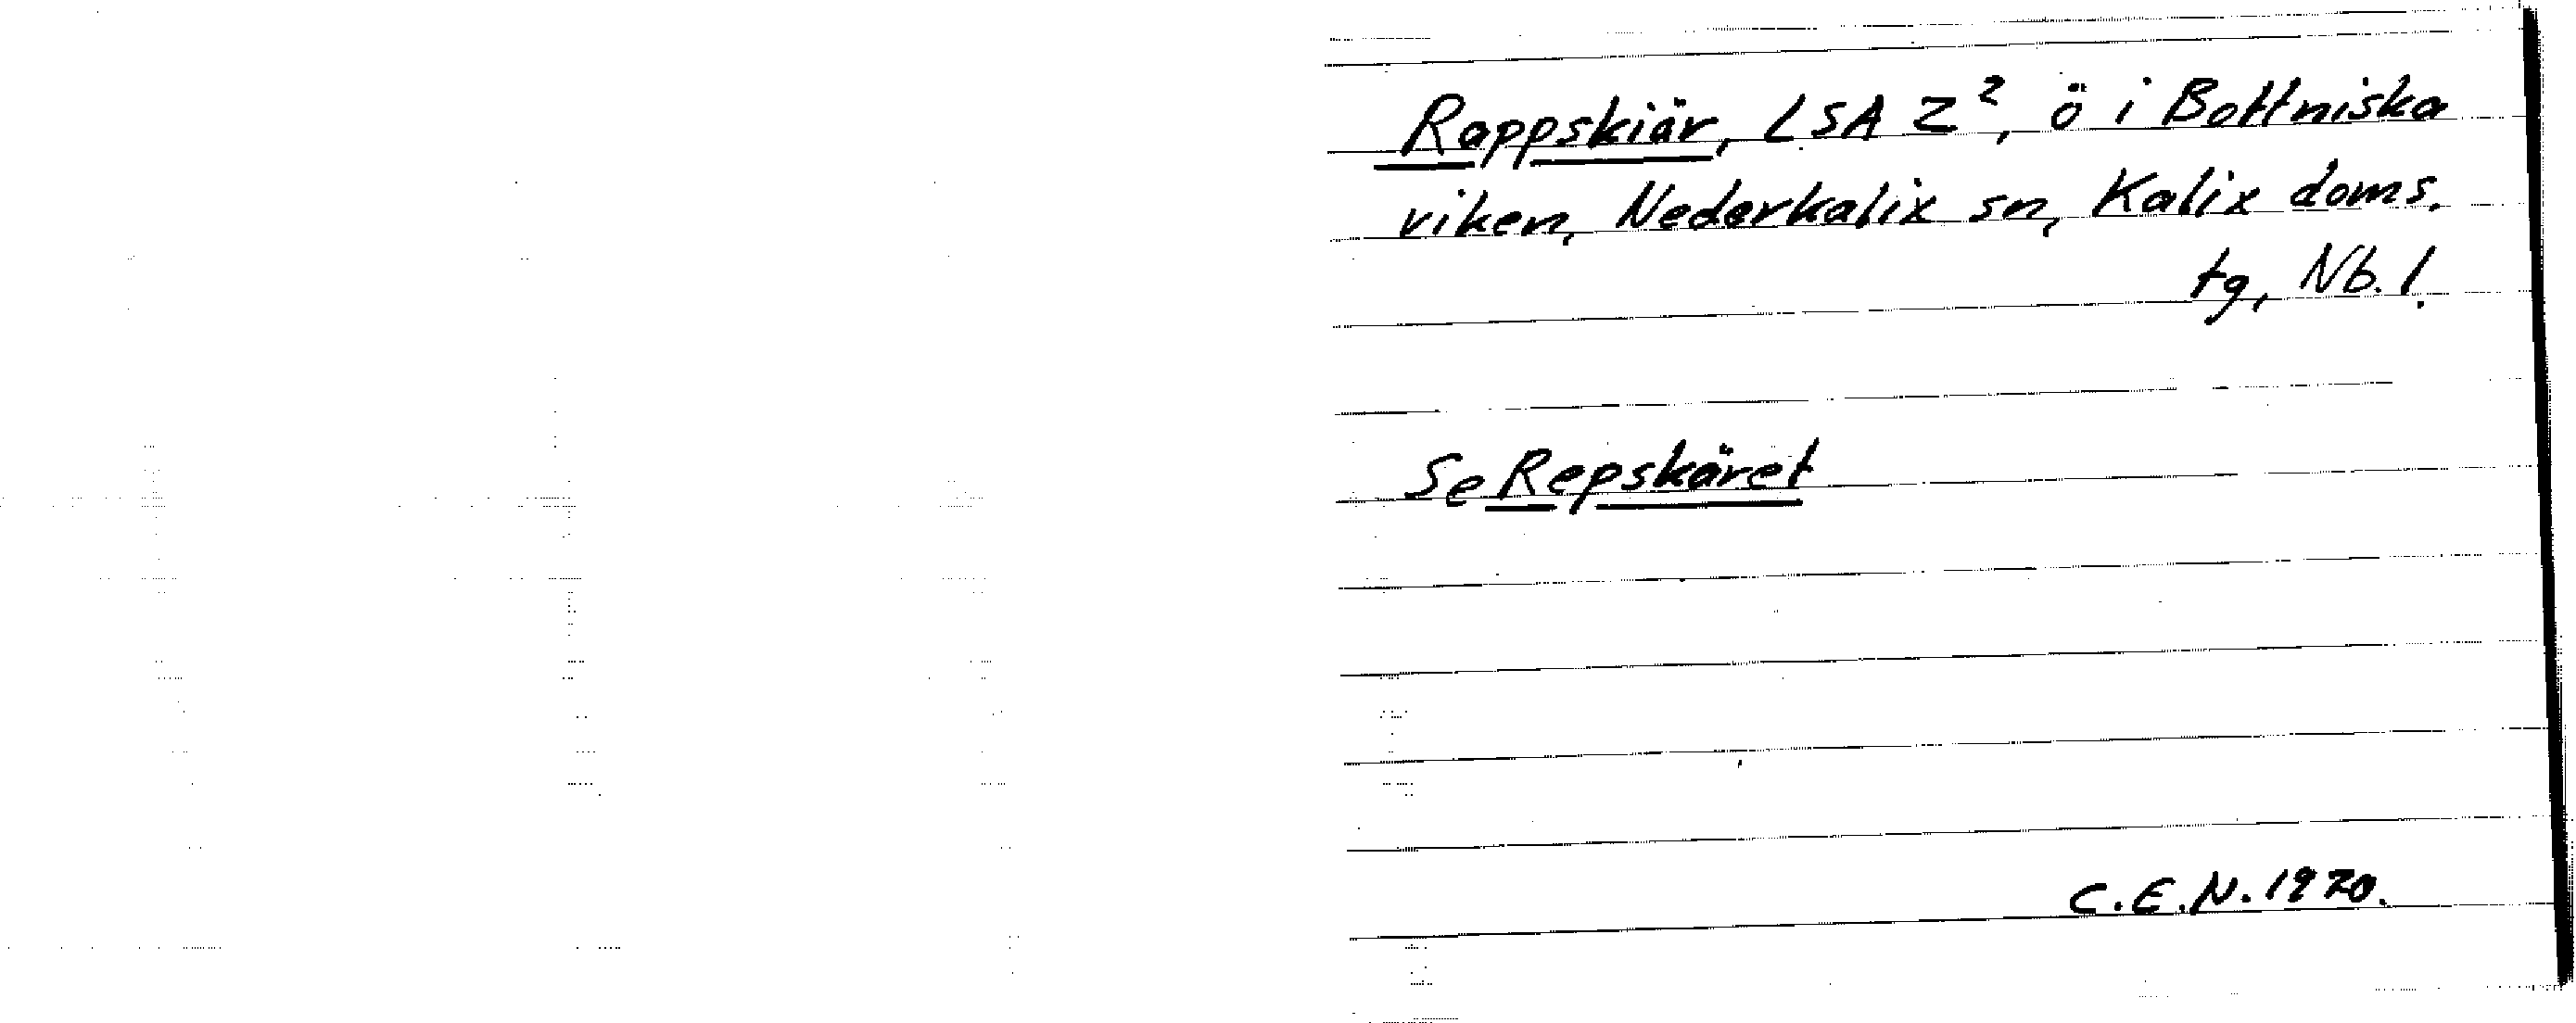 Rappskiär, LSA Z², ö i Bottniska
viken, Nederkalix sn, Kalix doms.
tg, Nb. l.
Se Repskäret
C.E.N. 1970.